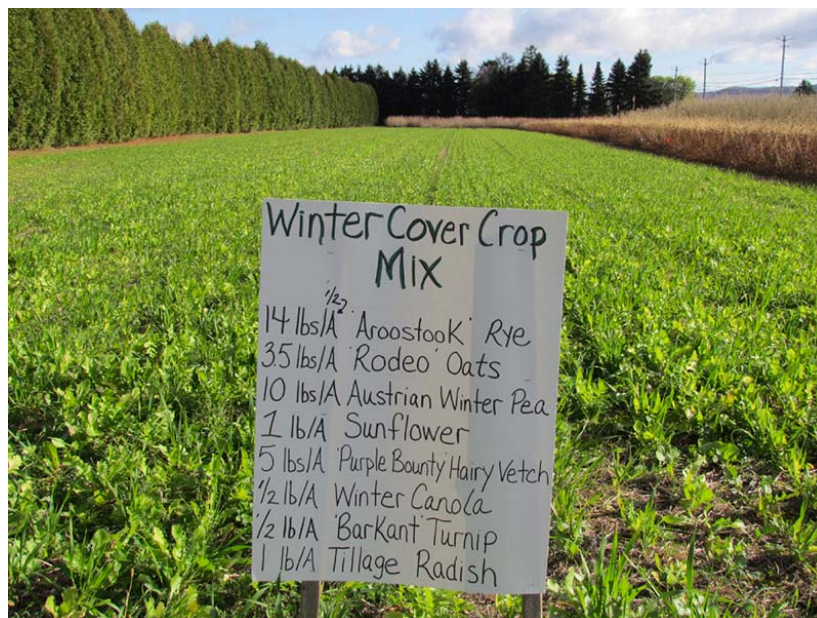 Winter Cover Crop
Mix
1/22
14 lbs/A 'Aroostook' Rye
35 lbs/A 'Rodeo' Oats
10 lbs/A Austrian Winter Pea
1 lb/A Sunflower
5 lbs/A 'Purple Bounty' Hairy Vetch
1/2 lb/A Winter Canola
1/2 lb/A 'BarKant' Turnip
1 lb/A Tillage Radish